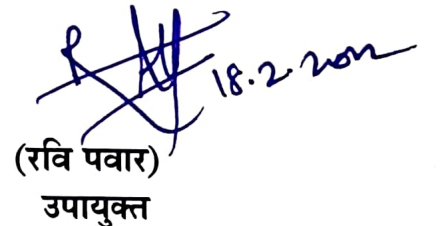 18.2.2022
(रवि पवार)
उपायुक्त